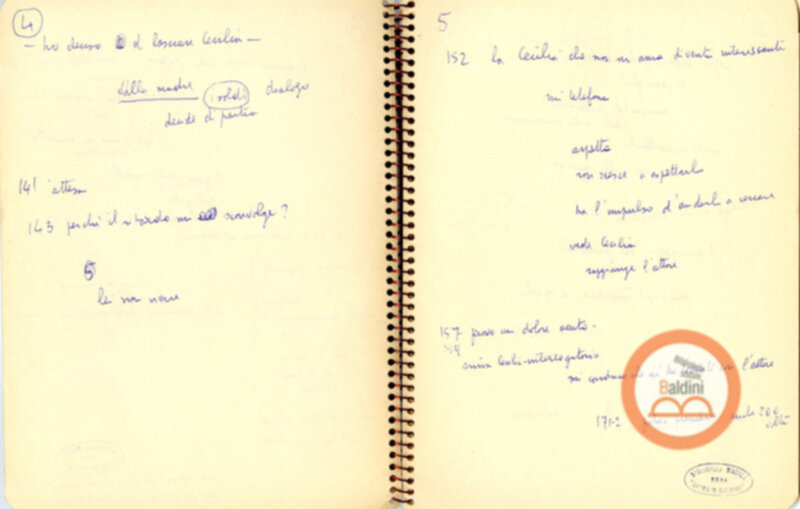 4
— ho deciso di lasciare Cecilia —
dalla madre i soldi dialogo
decide di partire
141 attesa
143 perché il ritardo mi sconvolge?
5
lei non viene
5
152 la Cecilia che non mi ama diventa interessante
mi telefona
aspetta
non riesce a aspettarla
ha l'impulso d'andarla a cercare
vede Cecilia
raggiunge l'attore
157 provo un dolore acuto -
arriva Cecilia-interrogatorio
mi l'attore
171-2
Biblioteca statale
Baldini
BIBLIOTECA STATALE
ROMA
"ANTONIO BALDINI"